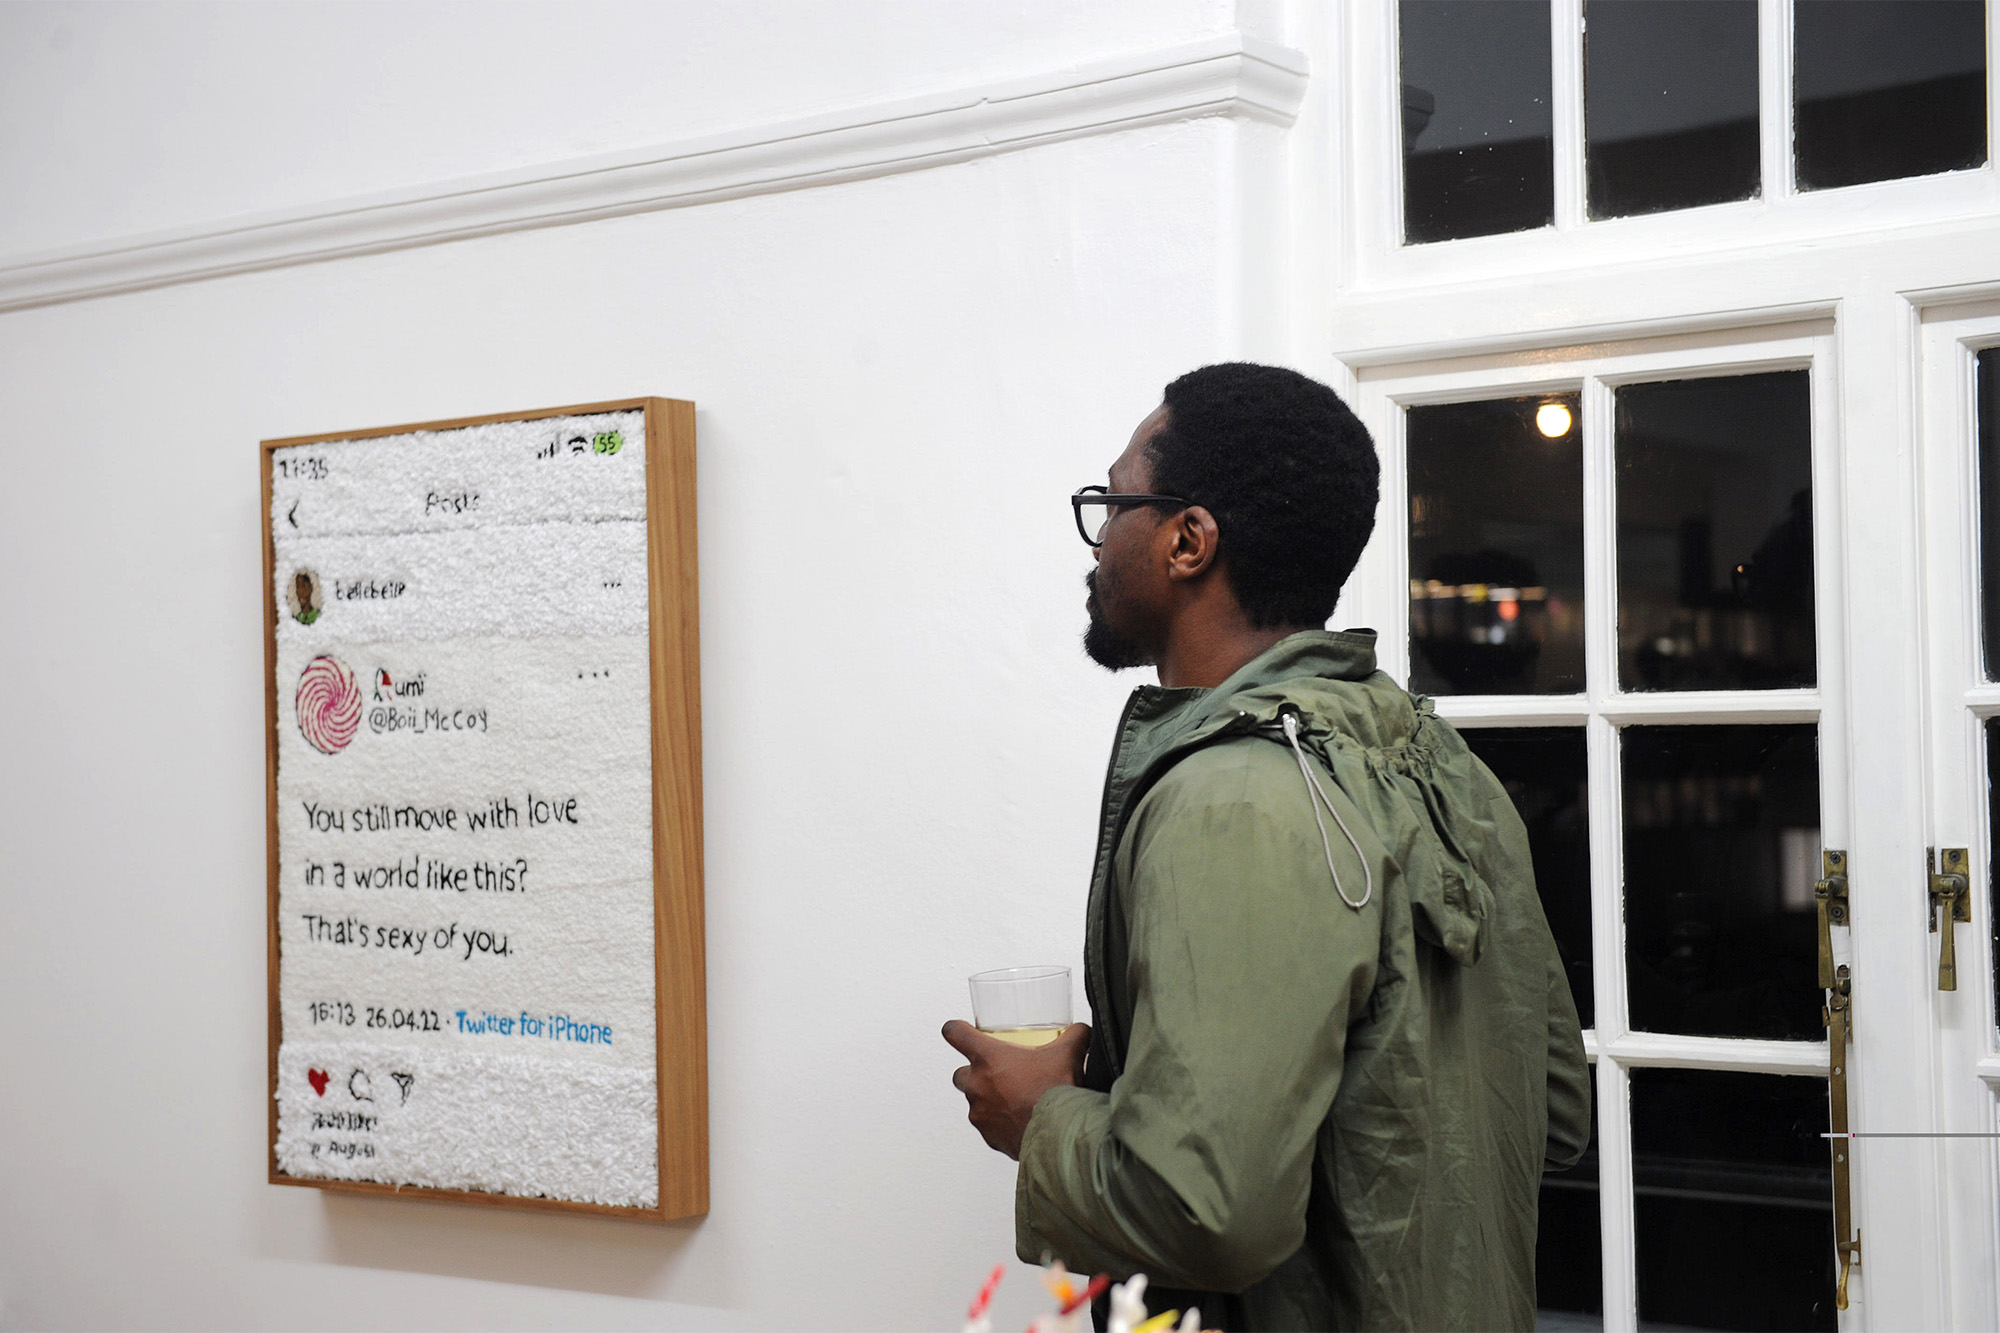 55
Posts
umi
@Boii_McCoy
You still move with love
in a world like this?
That's sexy of you.
16:13 26.04.22 · Twitter for iPhone
August